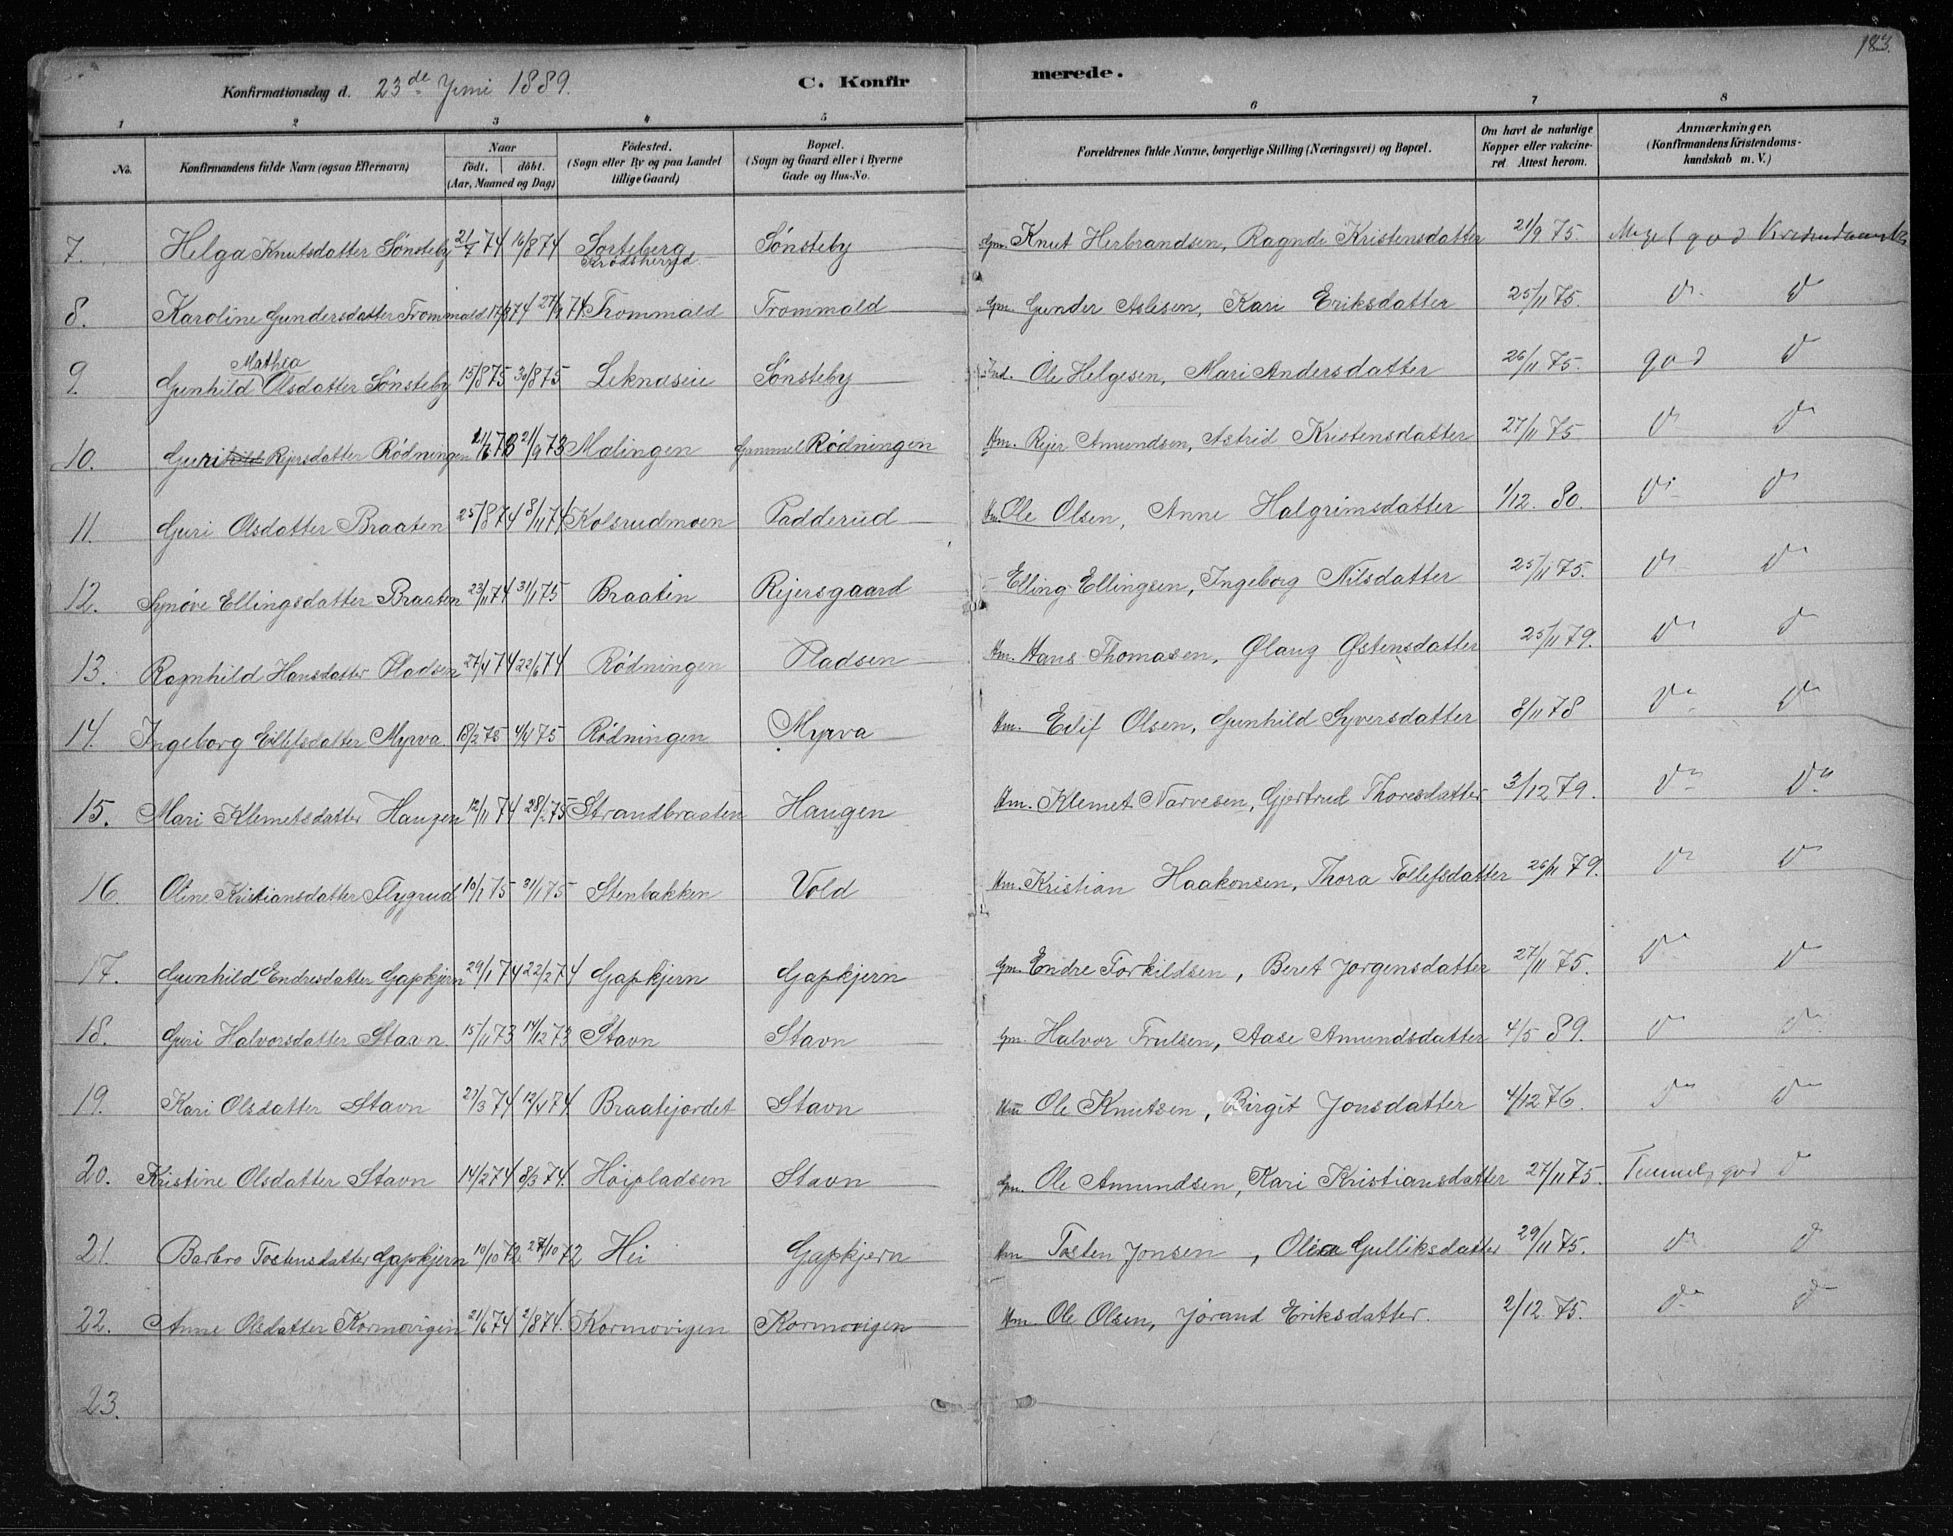 183.
Konfirmationsdag d. 23de Juni 1889. C. Konfirmerede.
1 2 3 4 5 6 7 8
No. Konfirmandens fulde Navn (ogsaa Efternavn) Naar født, døbt. (Aar, Maaned og Dag) Fødested. (Sogn eller By og paa Landet tillige Gaard) Bopæl. (Sogn og Gaard eller i Byerne Gade og Hus-No. Forældrenes fulde Navne, borgerlige Stilling (Næringsvei) og Bopæl. Om havt de naturlige Kopper eller vakcineret. Attest herom. Anmærkninger. (Konfirmandens Kristendomskundskab m. V.)
7. Helga Knutsdatter Sønsteby 21/7 74 16/8 74 Sorteberg Krødsherred Sønsteby Gm. Knut Herbrandsen, Ragnde Kristensdatter 21/9 75. Meget god
8. Karoline Gundersdatter Trommald 17/8 74 27/9 74 Trommald Trommald Gm. Gunder Aslesen, Kari Eriksdatter 25/11 75. D D
9. Gunhild Mathea Olsdatter Sønsteby 15/8 75 30/8 75 Leknæseie Sønsteby Ind. Ole Helgesen, Mari Andersdatter 26/11 75. god D
10. Guri Rejersdatter Rødningen 21/6 73 21/9 73 Malingen Gammel Rødningen Hm. Rejer Amundsen, Astrid Kristensdatter 27/11 75 D D
11. Guri Olsdatter Braaten 25/8 74 8/11 74 Kolsrudmoen Padderud Hm. Ole Olsen, Anne Halgrimsdatter 1/12. 80. D D
12. Synøve Ellingsdatter Braaten 23/11 74 31/1 75 Braaten Rejersgaard Elling Ellingsen, Ingeborg Nilsdatter 25/11 75. D D
13. Ragnhild Hansdatter Pladsen 27/4 74 22/6 74 Rødningen Pladsen Hm. Hans Thomasen, Olaug Østensdatter 25/11 79. D D
14. Ingeborg Eilefsdatter Myrva 18/2 75 4/4 75 Rødningen Myrva Hm. Eilif Olsen, Gunhild Syversdatter 8/11 78 D D
15. Mari Klemetsdatter Haugen 12/11 74 28/ 75 Strandbraaten Haugen Hm. Klemet Narvesen, Gjertrud Thoresdatter 3/12 79. D D
16. Oline Kristiansdatter Flygrud 10/1 75 31/1 75 Stenbakken Vold Hm. Kristian Haakonsen, Thora Tollefsdatter 26/11 79. D D
17. Gunhild Endresdatter Gapkjern 29/1 74 22/2 74 Gapkjern Gapkjern Gm. Endre Torkildsen, Beret Jørgensdatter 27/11 75. D D
18. Guri Halvorsdatter Stavn 15/11 73 14/12 73 Stavn Stavn Gm. Halvor Trulsen, Aase Amundsdatter 4/5 89. D D
19. Kari Olsdatter Stavn 27/3 74 12/4 74 Braatejordet Stavn Hm Ole Knutsen, Birgit Jonsdatter 4/12 76. D D
20. Kristine Olsdatter Stavn 14/2 74 8/3 74. Høipladsen Stavn Gm. Ole Amundsen, Kari Kristiansdatter 27/11 75. Temmelig god D
21. Barbro Tostensdatter Gapkjern 10/10 72 27/10 72 Hei Gapkjern Hm Tosten Jonsen, Olea Gulliksdatter 29/11 75. D D
22. Anne Olsdatter Kormovigen 21/6 74 2/8 74. Kormovigen Kormovigen Hm Ole Olsen, Jørand Eriksdatter. 2/12. 75. D D
23.